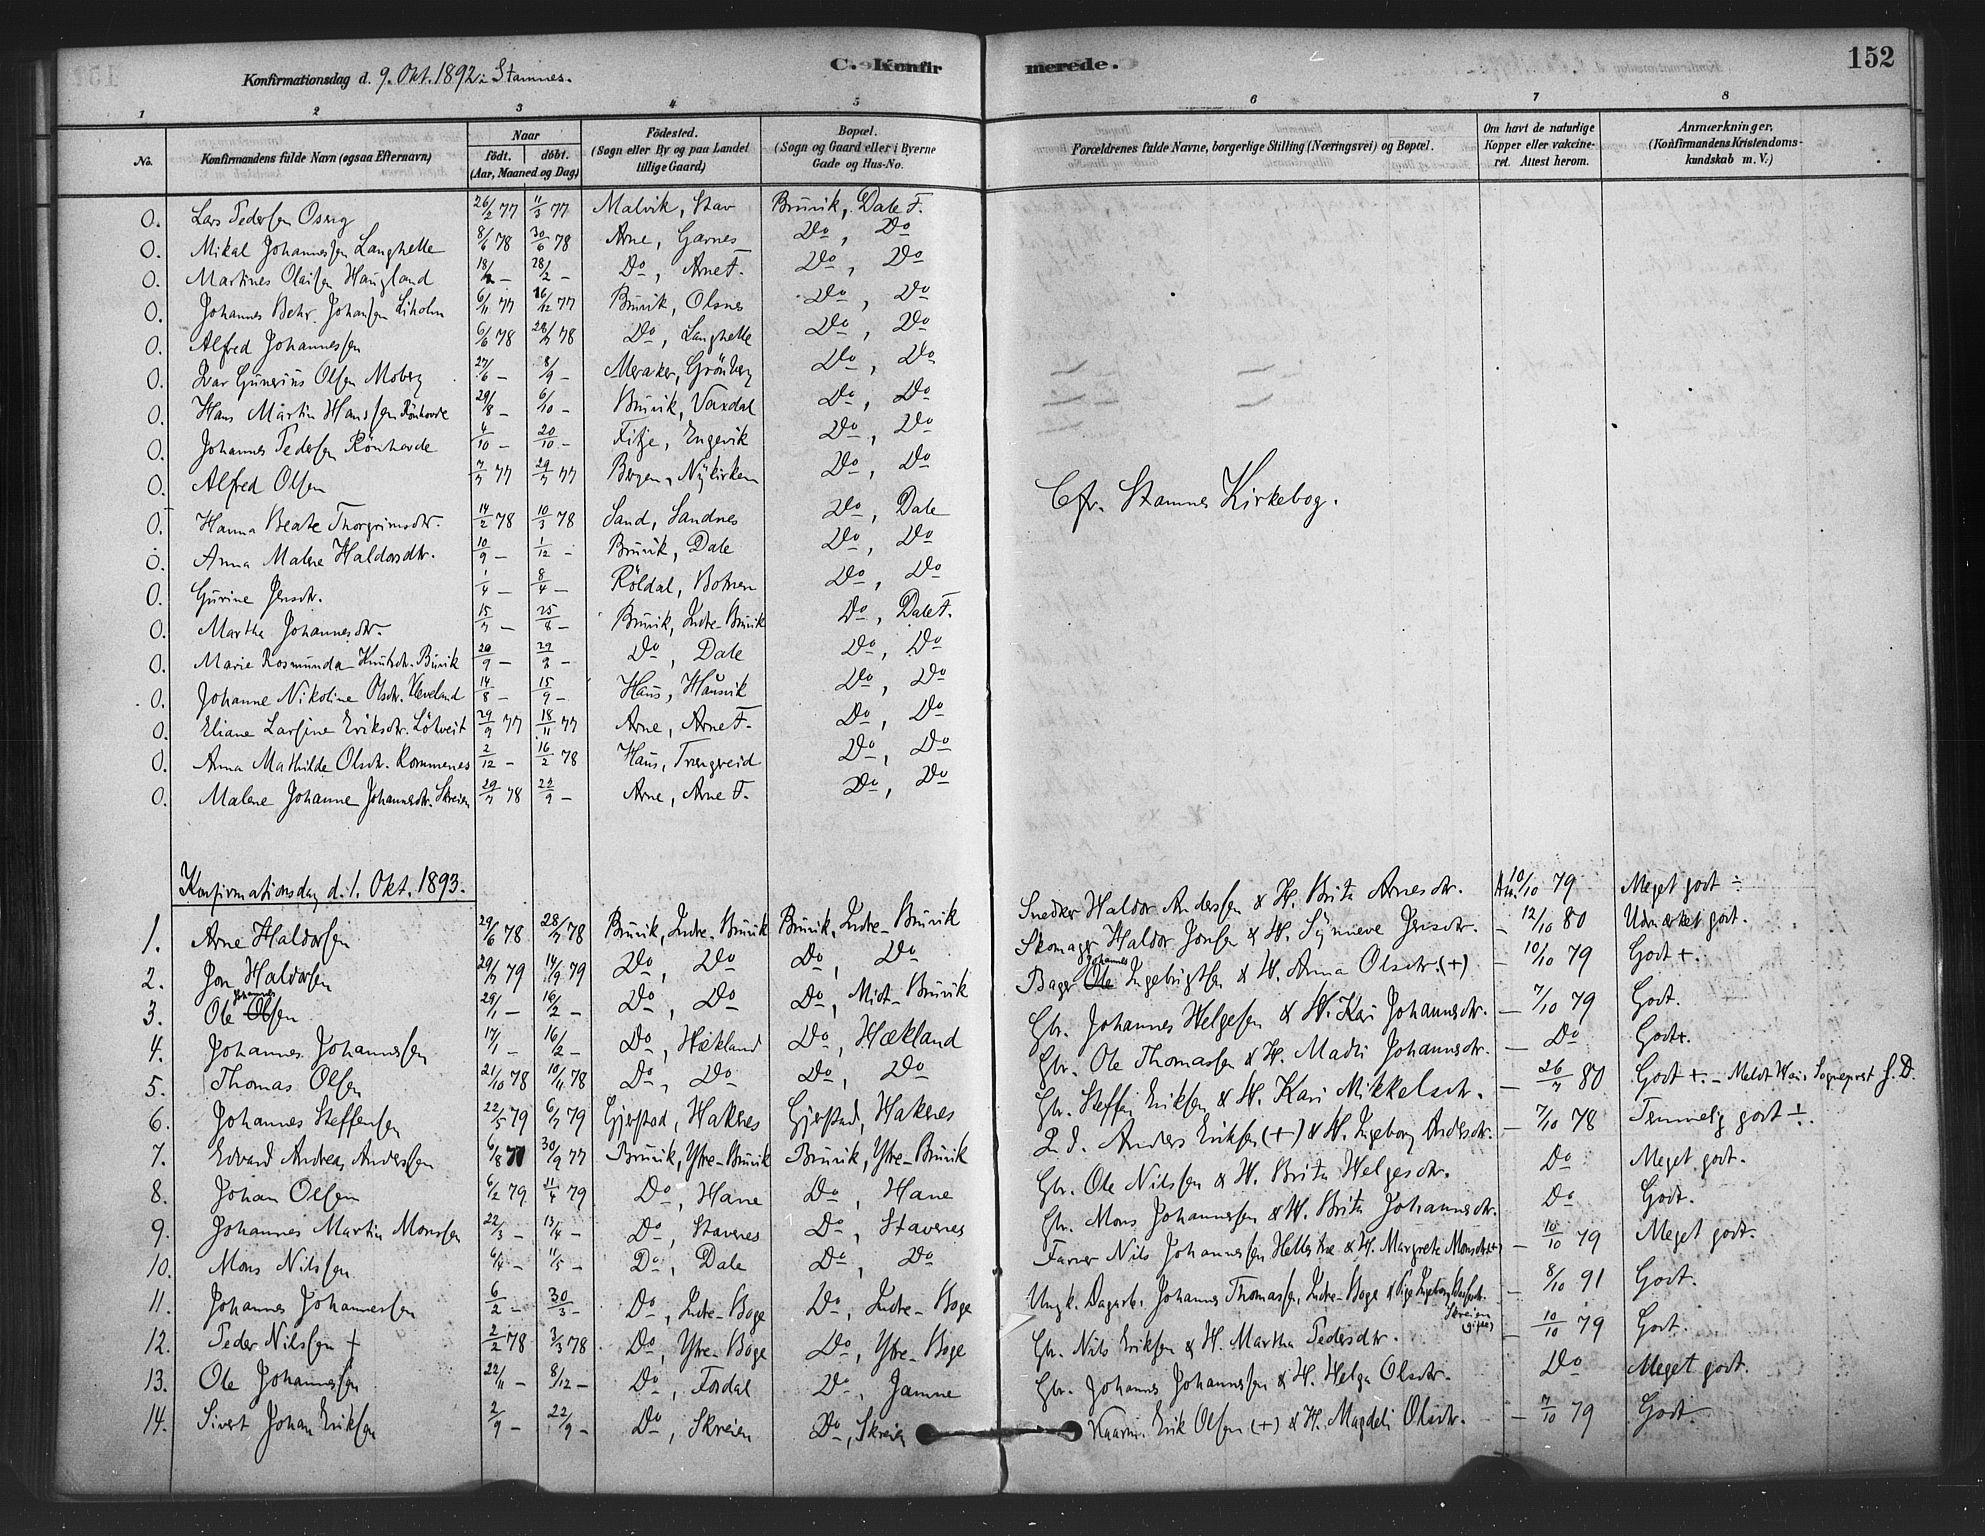 C. Konfirmerede. 152
Konfirmationsdag d. 9. Okt. 1892 i Stamnes.
1 2 3 4 5 6 7 8
No. Konfirmandens fulde Navn (ogsaa Efternavn) Naar født. døbt. (Aar, Maaned og Dag) Födested. (Sogn eller By og paa Landet tillige Gaard) Bopæl. (Sogn og Gaard eller i Byerne Gade og Hus-No. Forældrenes fulde Navne, borgerlige Stilling (Næringsvei) og Bopæl. Om havt de naturlige Kopper eller vakcineret. Attest herom. Anmærkninger. (Konfirmandens Kristendomskundskab m. V.)
0. Lars Pedersen 26/2 77 11/3 77 Malvik, Stav Bruvik, Dale F.
0. Mikal Johannessen Langhelle 8/6 78 30/6 78 Arne, Garnes Do, Do
0. Martines Olaisen Haugland 18/ – 28/2 – Do, Arne F. Do, Do
0. Johannes Behr. Johansen Liholm 6/11 77 16/12 77 Bruvik, Olsnes Do, Do
0. Alfred Johannessen 6/6 78 28/7 78 Do, Langhelle Do, Do
0. Ivar Gunerius Olsen Moberg 27/6 – 8/9 – Meraker, Grönberg Do, Do
0. Hans Martin Hanssen Rönhovde 29/8 – 6/10 – Bruvik, Vaxdal Do, Do
0. Johannes Pedersen Rönhovde 4/10 – 20/10 – Fitje, Engevik Do, Do
0. Alfred Olsen 7/7 77 29/7 77 Bergen, Nykirken Do, Do
0. Hanna Beate Thorgrimsdtr. 14/2 78 10/3 78 Sand, Sandnes Do, Dale
Cfr. Stamnes Kirkebog.
0. Anna Malene Haldorsdtr. 10/9 – 1/12 – Bruvik, Dale Do, Do
0. Gurine Jensdtr. 1/4 – 8/4 – Röldal, Botnen Do, Do
0. Martha Johannesdtr. 15/7 – 25/8 – Bruvik, Indre-Bruvik Do, Dale F.
0. Marie Rosmunda Knutsdtr. Bruvik 20/9 – 29/9 – Do, Dale Do, Do
0. Johanne Nikoline Olsdtr. Kleveland 14/8 – 15/9 – Haus, Hausvik Do, Do
0. Eliane Larsine Eriksdtr. Lötveit 29/9 77 18/11 77 Arne, Arne F. Do, Do
0. Anna Mathilde Olsdtr. Rommenes 2/12 – 16/2 78 Haus, Trengereid Do, Do
0. Malene Johanne Johannesdtr. Skreien 29/7 78 22/9 – Arne, Arne F. Do, Do
Konfirmationsdag d. 1. Okt. 1893.
1. Arne Haldorsen 29/6 78 28/7 78 Bruvik, Indre-Bruvik Bruvik, Indre-Bruvik Snedker Haldor Anderssen & H. Brita Arnesdtr. Att. 10/10 79 Meget godt ÷
2. Jon Haldorsen 29/7 79 14/9 79 Do, Do Do, Do Skomager Haldor Jonsen & H. Synneve Jensdtr. – 12/10 80 Udmærket godt.
3. Ole Johannes Olsen 29/1 – 16/2 – Do, Do Do, Midt-Bruvik Bager Ole Johannes Ingebrigtsen & H. Anna Olsdtr. (+) – 10/10 79 Godt +.
4. Johannes Johannessen 17/1 – 16/2 – Do, Hækland Do, Hækland Gbr. Johannes Helgesen & H. Kari Johannesdtr. – 7/10 79 Godt.
5. Thomas Olsen 21/10 78 10/11 78 Do, Do Do, Do Gbr. Ole Thomassen & H. Madli Johannesdtr. – Do Godt+.
6. Johannes Steffensen 22/5 79 6/7 79 Gjerstad, Haknes Gjerstad, Haknes Gbr. Steffen Eriksen & H. Kari Mikkelsdtr. – 26/7 80 Godt +. – Meldt Haus Sogneprest s. D.
7. Edvard Andreas Anderssen 6/8 77 30/9 77 Bruvik, Ytre-Bruvik Bruvik, Ytre-Bruvik Anders Eriksen (+) & H. Ingeborg Andersdtr. – 7/10 78 Temmelig godt ÷.
8. Johan Olsen 6/2 79 11/4 79 Do, Hane Do, Hane Gbr. Ole Nilssen & H. Brita Helgesdtr. Do Meget godt.
9. Johannes Martin Monssen 22/3 – 13/4 – Do, Stavenes Do, Stavenes Gbr. Mons Johannessen & H. Brita Johannesdtr. Do Godt.
10. Mons Nilssen 6/4 – 11/5 – Do, Dale Do, Do Farver Nils Johannessen Helletræ & H. Margrete Monsdtr. (+) – 10/10 79 Meget godt.
11. Johannes Johannessen 6/2 – 30/3 – Do, Indre-Boge Do, Indre-Boge Ungk. Dagarb. Johannes Thomassen, Indre-Boge & Pige Ingeborg Skreien (gift) – 8/10 91 Godt.
12. Peder Nilssen + 2/2 78 3/3 78 Do, Ytre-Boge Do, Ytre-Boge Gbr. Nils Eriksen & H. Martha Pedersdtr. – 10/10 79 Godt.
13. Ole Johannessen 22/11 – 8/12 – Do, Fosdal Do, Jamne Gbr. Johannes Johannessen & H. Helga Olsdtr. Do Meget godt.
14. Sivert Johan Eriksen 2/9 – 22/9 – Do, Skreien Do, Skreien Erik Olsen (+) & H. Magdeli Olsdtr. – 7/10 79 Godt.